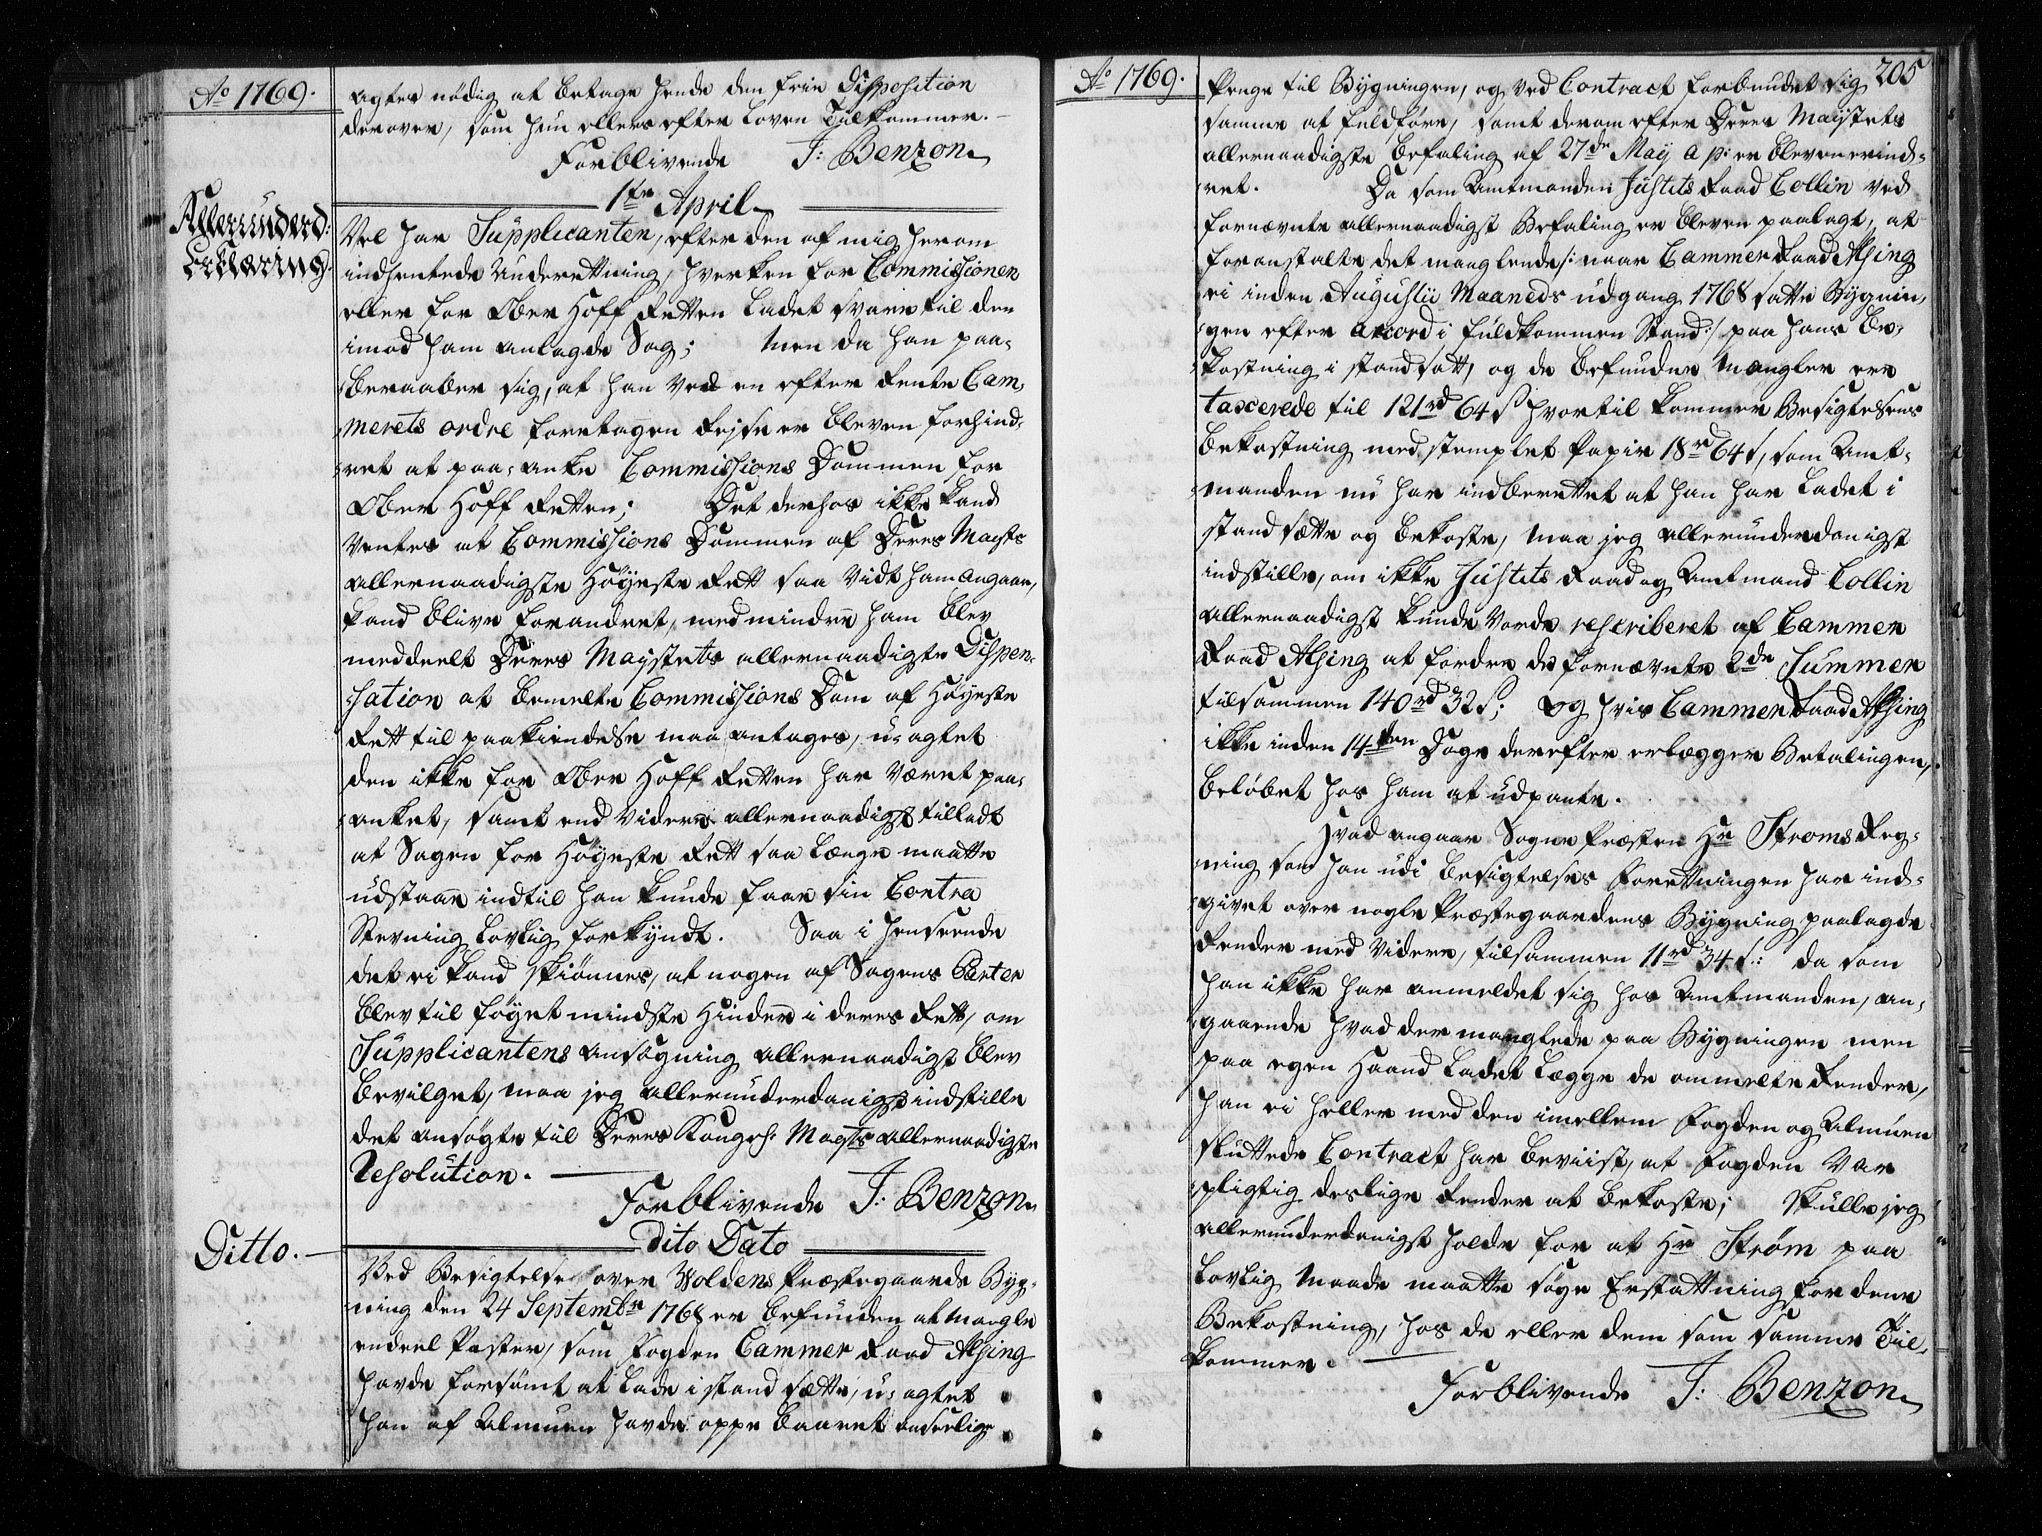 Ao 1769.
agter nödig at betage hende den frie Disposition
derover, som hun ellers efter Loven Tilkommer.
Forblivende J: Benzon
1te April
Allerunderd:
Erklæring.
Vel har Supplicanten, efter den af mig herom
indhentede Underettning, hverken for Commissionen
eller for Ober Hoff Retten ladet svare til den
imod ham anlagde Sag; Men da han paa-
beraaber sig, at han ved en efter Rente Cam-
merets ordre foretagen Rejse er bleven forhind-
ret at paa-anke Commissions Dommen for
Ober Hoff Retten; Det derhos ikke kand
ventes at Commissions Dommen af Deres Maysts
allernaadigste Höyeste Rett saa vidt ham angaar,
kand blive forandret, med mindre ham blev
meddeelt Deres Maystets allernaadigste Dispen-
sation at bemelte Commissions Dom af Höyeste
Rett til paakiendelse maa antages, u-agtet
den ikke for Ober Hoff Retten har været paa-
anket, samt end videre allernaadigst tilladt
at Sagen for Höyeste Rett saa længe maatte
udstaae indtil han kunde faae sin Contra
Stevning lovlig forkyndt. Saa i henseende
det ei kand skiönnes, at nogen af Sagens Parter
blev til föyet mindste Hinder i deres Rett, om
Supplicantens ansögning allernaadigst blev
bevilget, maa jeg allerunderdanigst indstille
det ansögte til Deres Kongel: Maysts allernaadigste
Resolution.
Forblivende J: Benzon
Dito Dato
Ditto.
Ved Besigtelse over Woldens Præstegaards Byg-
ning den 24 Septembr 1768 er befunden at mangle
endeel Poster, som Fogden Cammer Raad Alsing
havde forsömt at lade i stand sætte, u-agtet
han af Almuen havde oppebaaret anseelige
Ao 1769.
205
Penge til Bygningen, og ved Contract forbundet sig
samme at fuldføre, samt derom efter Deres Maystets
allernaadigste befaling af 27de May a p: er bleven erind-
ret. Da som Amtmanden Justits Raad Collin ved
fornævnte allernaadigst Befaling er bleven paalagt, at
foranstalte det manglende /: naar Cammer Raad Alsing
ei inden Augusti Maaneds udgang 1768 satte Bygnin-
gen efter accord i fuldkommen Stand :/ paa hans be-
kostning i stand satt, og de befundne Mangler ere
taxcerede til 121 rd 64 s hvortil kommer Besigtelsens
bekostning med stemplet Papir 18 rd 64 s, som Amt-
manden nu har indberettet at han har ladet i
stand sætte og bekoste, maa jeg allerunderdanigst
indstille, om ikke Justits Raad og Amtmand Collin
allernaadigst kunde vorde rescriberet af Cammer
Raad Alsing at fordre de fornævnte 2de Summer
tilsammen 140 rd 32 s; og hvis Cammer Raad Alsing
ikke inden 14ten Dage derefter erlægger Betalingen,
beløbet hos ham at udpante.
Hvad angaar Sogne Præsten Hr Strøms Reg-
ning som han udi besigtelses Forettningen har ind-
givet over nogle Præstegaardens Bygning paalagde
Render med videre, tilsammen 11 rd 34 s: da som
han ikke har anmeldet sig hos Amtmanden, an-
gaaende hvad der manglede paa Bygningen men
paa egen Haand ladet lægge de ommelte Render,
han ei heller med den imellem Fogden og Almuen
sluttede Contract har beviist, at Fogden var
pligtig deslige Render at bekoste; skulle jeg
allerunderdanigst holde for at Hr Strøm paa
lovlig Maade maatte søge Erstattning for denne
Bekostning, hos de eller dem som samme Til-
kommer.
Forblivende J: Benzon